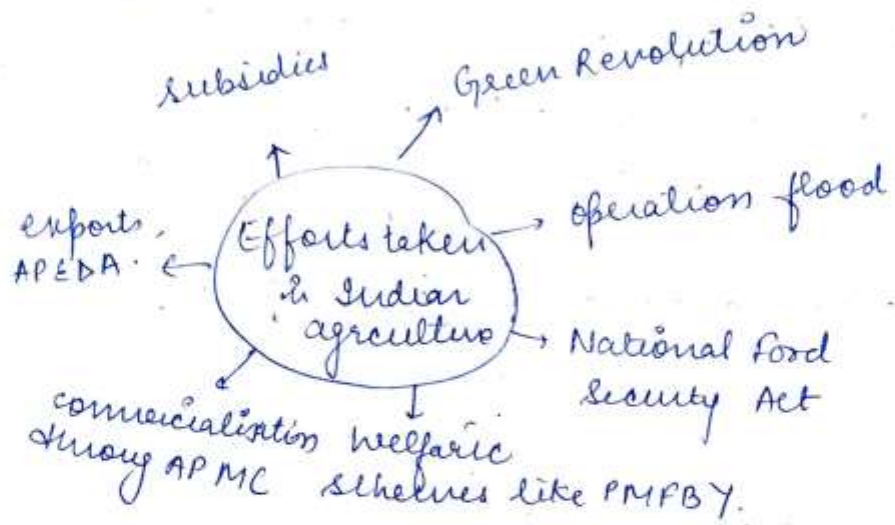 subsidies
Green Revolution
operation flood
exports,
APEDA.
Efforts taken
in Indian
agrculture
National Food
Security Act
commercialisation
through APMC
welfaric
schemes like PMFBY.